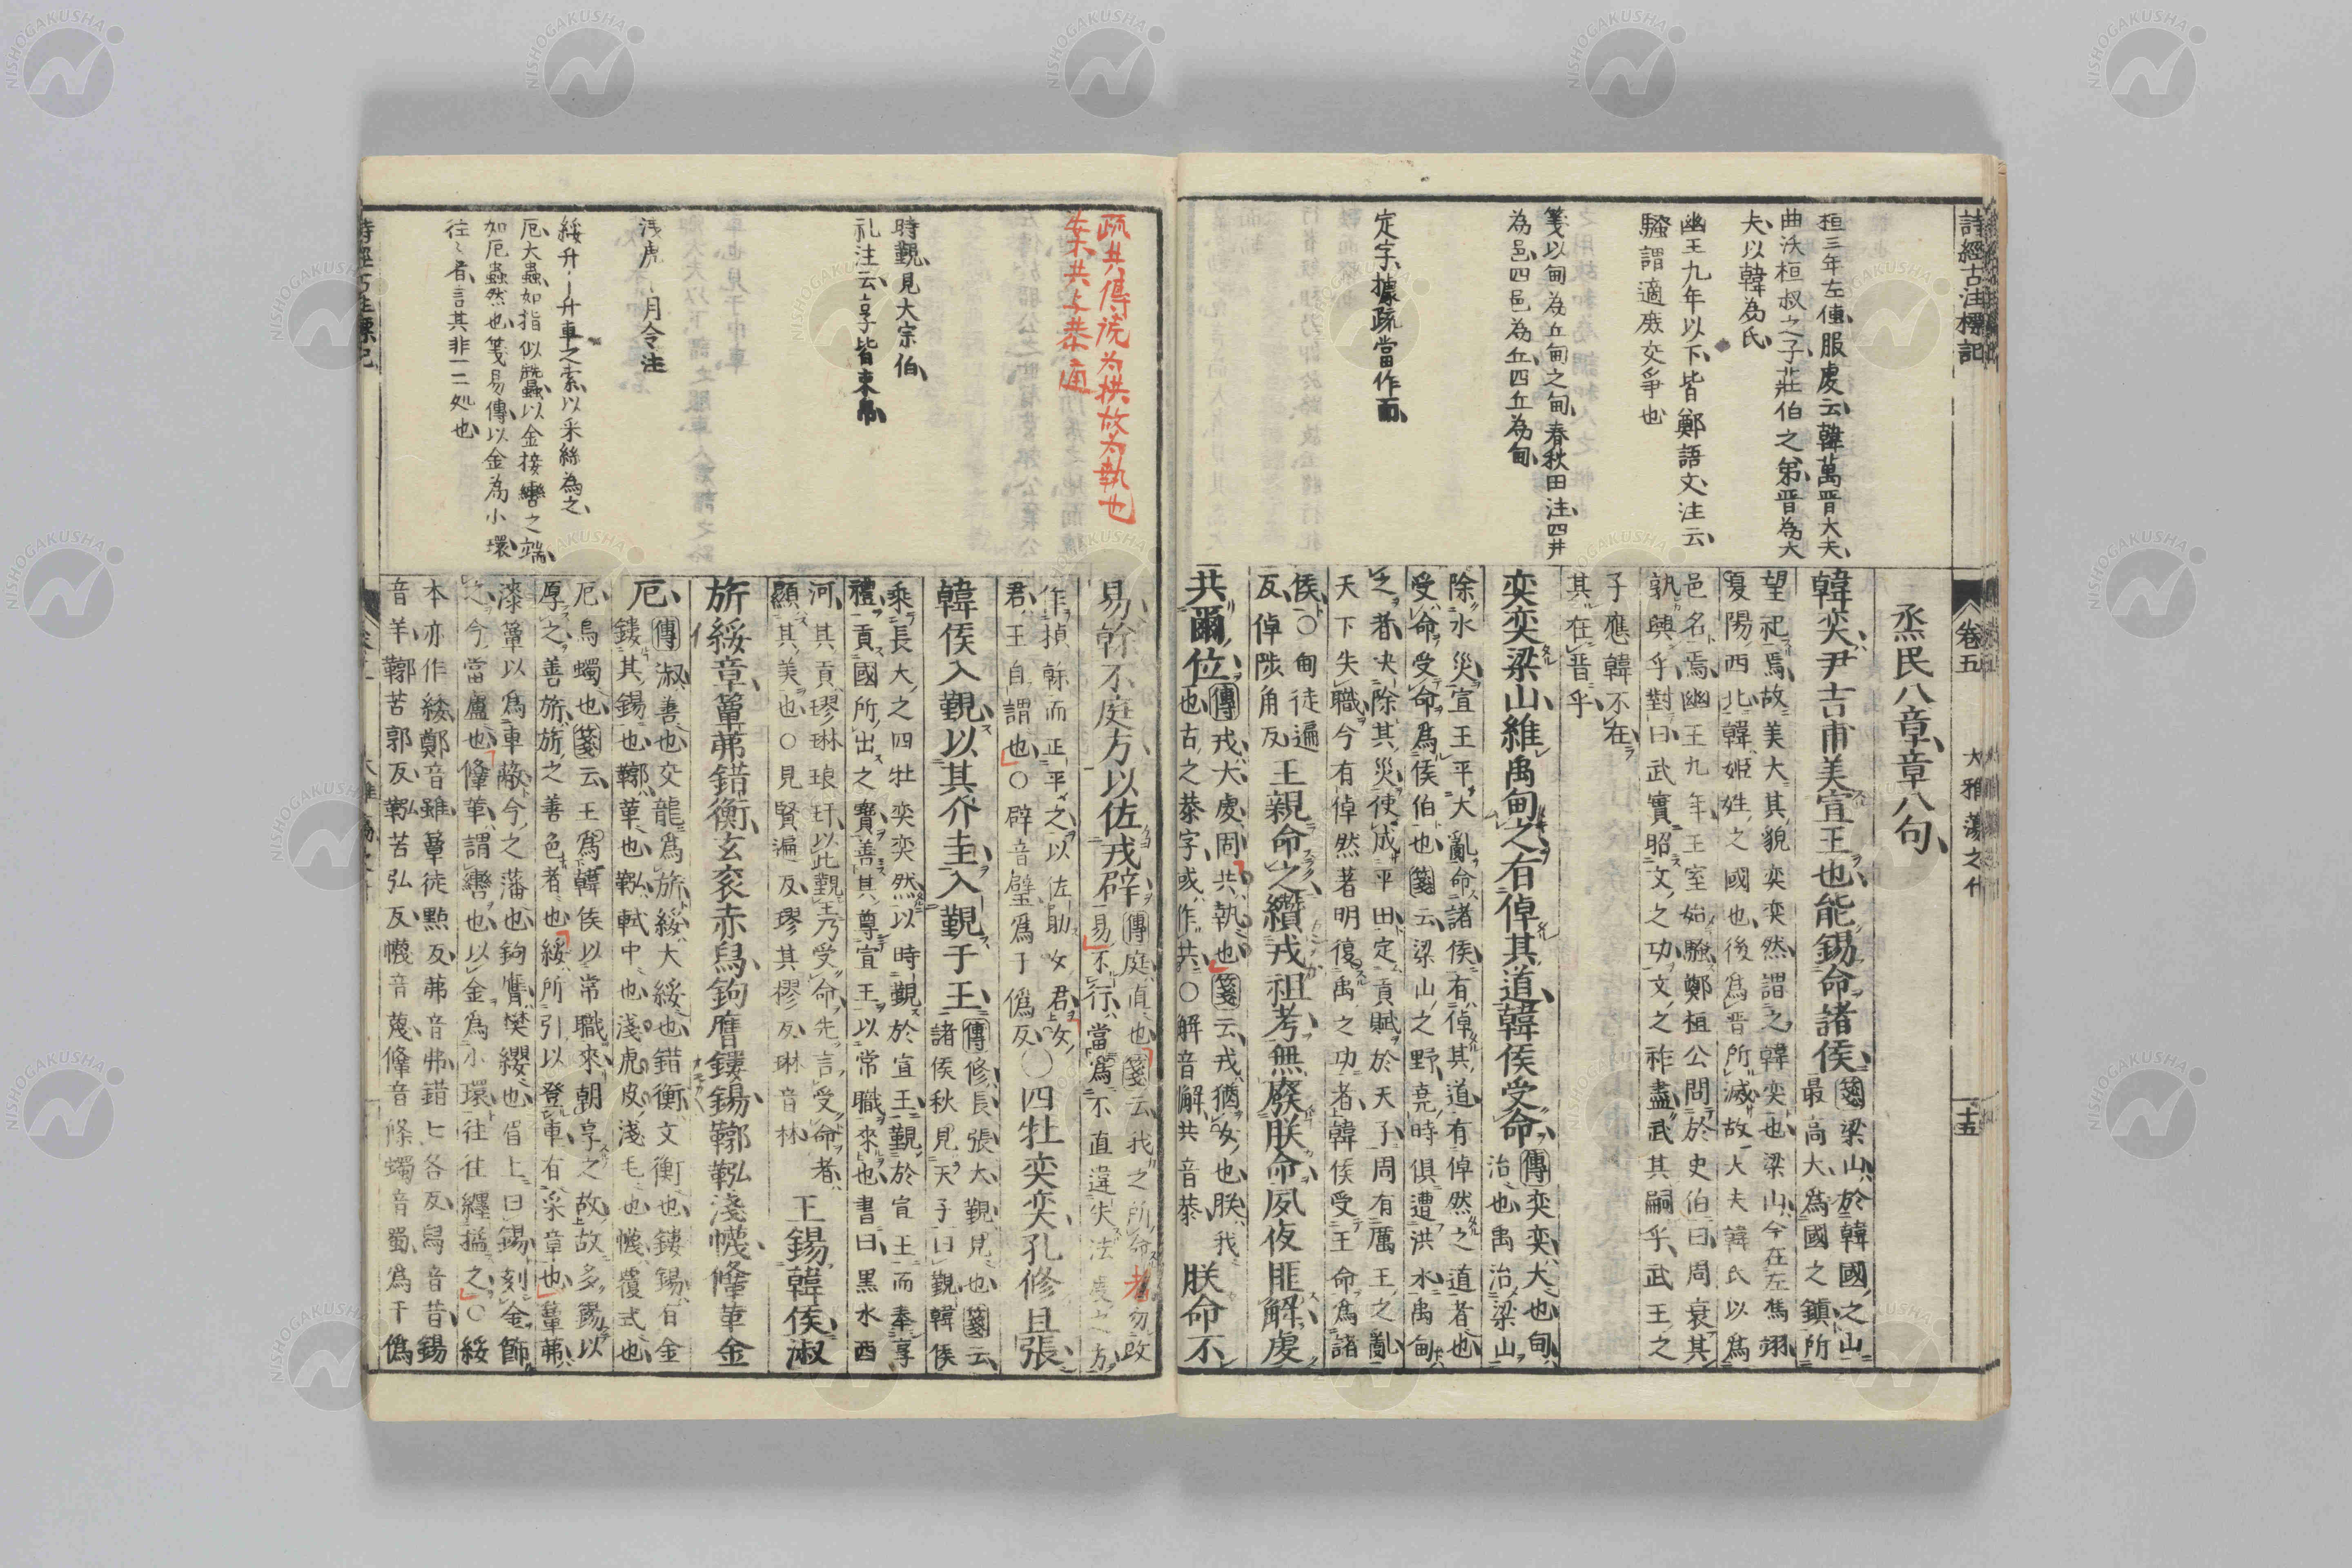 詩經古注標記
卷五
大雅蕩之什
十五
桓三年左傳服虔云韓萬晋大夫
曲沃桓叔之子莊伯之弟晋為大
夫以韓為氏
幽王九年以下皆鄭語文注云
騷謂適庶交爭也
箋以甸為丘甸之甸春秋田注四井
為邑四邑為丘四丘為甸
定字據疏當作而
烝民八章章八句
韓奕尹吉甫美宣王也能錫命諸侯
箋梁山於韓國之山
最高大為國之鎮所
望祀焉故美大其貌奕奕然謂之韓奕也梁山今在左馮翊
夏陽西北韓姬姓之國也後為晉所滅故大夫韓氏以為
邑名焉幽王九年王室始騷鄭桓公問於史伯曰周衰其
孰興乎對曰武實昭文之功文之祚盡武其嗣乎武王之
子應韓不在
其在晉乎
奕奕梁山維禹甸之有倬其道韓侯受命
傳奕奕大也甸
治也禹治梁山
除水災宣王平大亂命諸侯有倬其道有倬然之道者也
受命受命為侯伯也箋云梁山之野堯時俱遭洪水禹甸
之者決除其災使成平田定貢賦於天子周有厲王之亂
天下失職今有倬然著明復禹之功者韓侯受王命為諸
侯○甸徒遍
反倬陟角反
王親命之纘戎祖考無廢朕命夙夜匪解虔
共爾位
傳戎大虔固共執也箋云戎猶女也朕我
也古之恭字或作共○解音懈共音恭
朕命不
疏共傳訛为拱故为執也
案共与恭通
時覲見大宗伯
礼注云享皆束帛
浅虎 月令注
綏升〻升車之索以采絲為之
厄大蟲如指似蠶以金接轡之端
如厄蟲然也箋易傳以金為小環
往〻者言其非一二処也
易榦不庭方以佐戎辟
傳庭直也箋云我之所命者勿改
易不行當為不直違失法度之方
作楨榦而正平之以佐助女君女
君王自謂也○辟音璧為于僞反○
四牡奕奕孔修且張
韓侯入覲以其介圭入覲于王
傳修長張大覲見也箋云
諸侯秋見天子曰覲韓侯
乘長大之四牡奕奕然以時覲於宣王覲於宣王而奉享
禮貢國所出之寶善其尊宣王以常職來也書曰黑水西
河其貢璆琳琅玕以此覲王乃受命先言受命者
顯其美也○見賢遍反璆其樛反琳音林
王錫韓侯淑
旂綏章簟茀錯衡玄袞赤舄鉤膺鏤鍚鞹鞃淺幭鞗革金
厄
傳淑善也交龍為旂綏大綏也錯衡文衡也鏤鍚有金
鏤其鍚也鞹革也鞃軾中也淺虎皮淺毛也幭覆式也
厄烏蠋也箋云王為韓侯以常職來朝享之故故多錫以
厚之善旂旂之善色者也綏所引以登車有采章也簟茀
漆簟以為車蔽今之藩也鉤膺樊纓也眉上曰鍚刻金飾
之今當盧也鞗革謂轡也以金為小環往往纏搤之○綏
本亦作緌鄭音雖簟徒點反茀音弗錯七各反舄音昔鍚
音羊鞹苦郭反鞃苦弘反幭音蔑鞗音條蠋音蜀為于僞
NISHOGAKUSHA